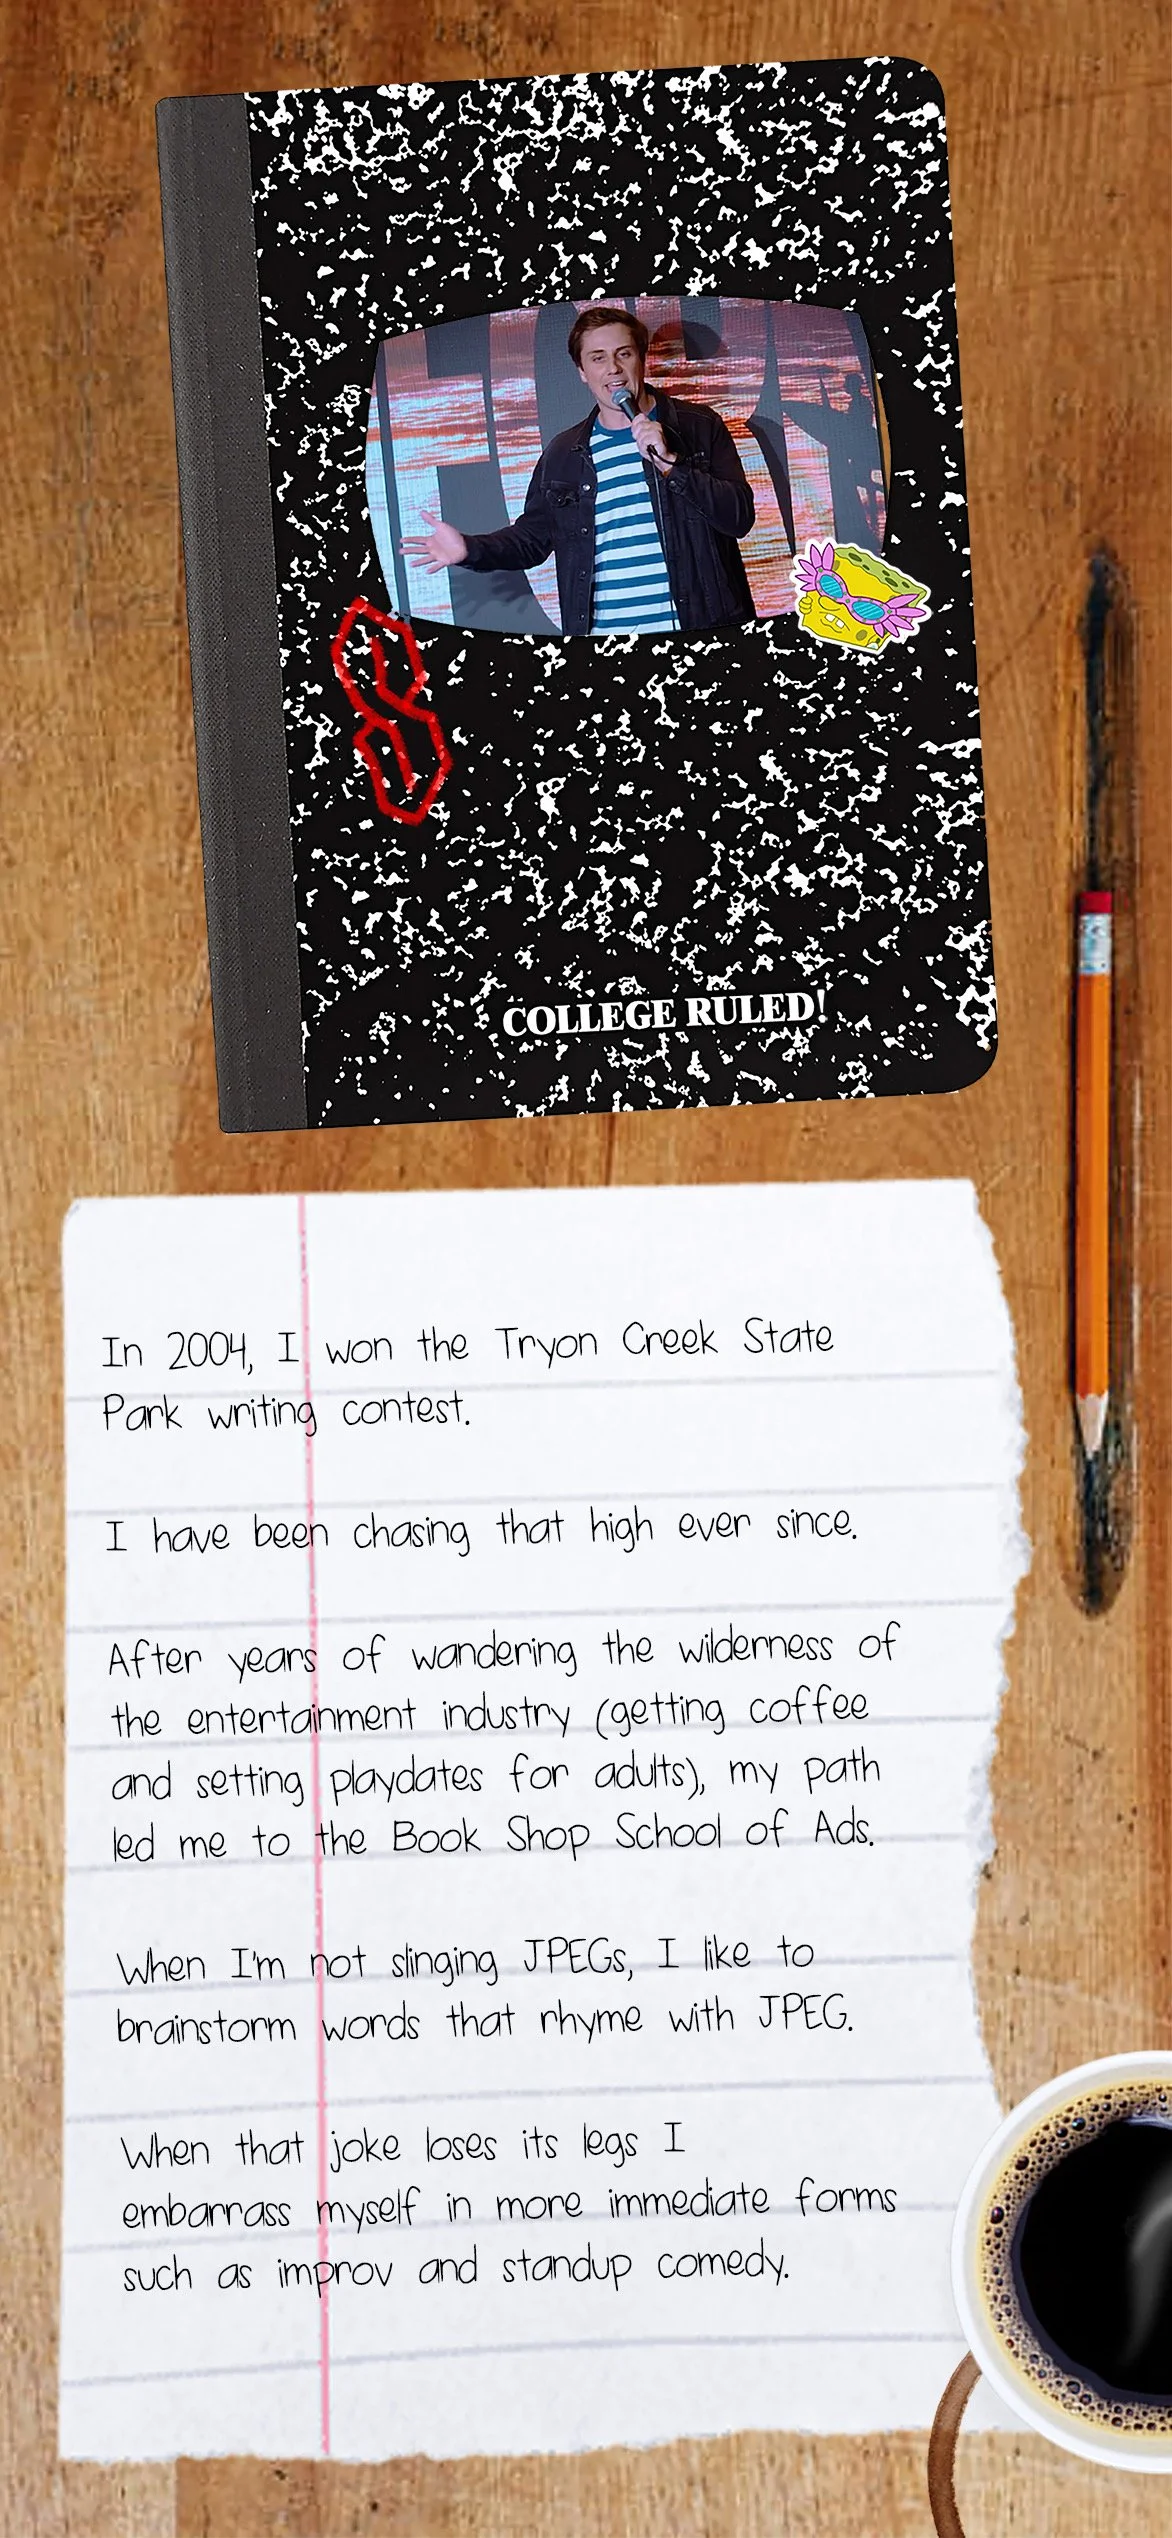 COLLEGE RULED!
In 2004, I won the Tryon Creek State
Park writing contest.
I have been chasing that high ever since.
After years of wandering the wilderness of
the entertainment industry (getting coffee
and setting playdates for adults), my path
led me to the Book Shop School of Ads.
When I'm not slinging JPEGs, I like to
brainstorm words that rhyme with JPEG.
When that joke loses its legs I
embarrass myself in more immediate forms
such as improv and standup comedy.